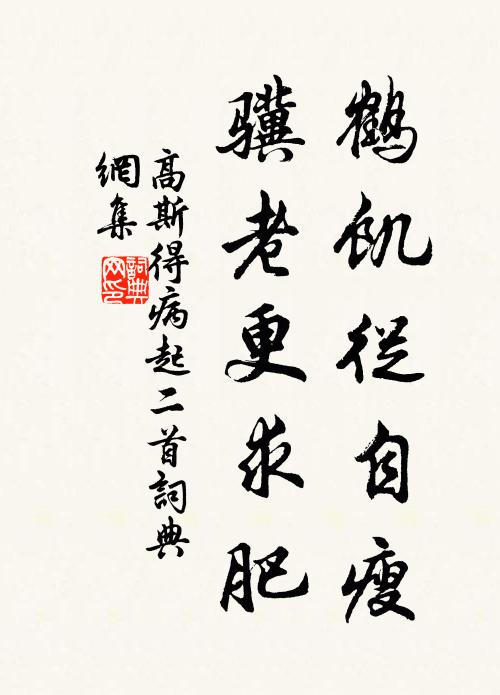 鶴飢從自瘦
驥老更求肥
高斯得病起二首詞典
網集
詞典网印